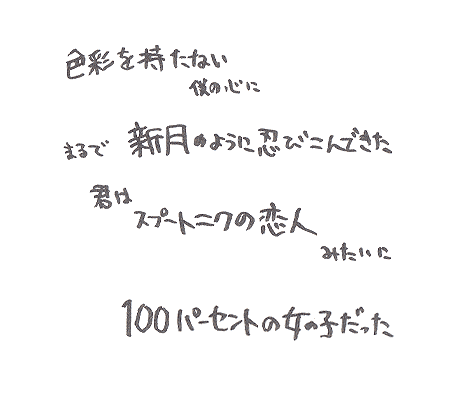 色彩を持たない
僕の心に
まるで新月のように忍びこんできた
君は
スプートニクの恋人
みたいに
100パーセントの女の子だった